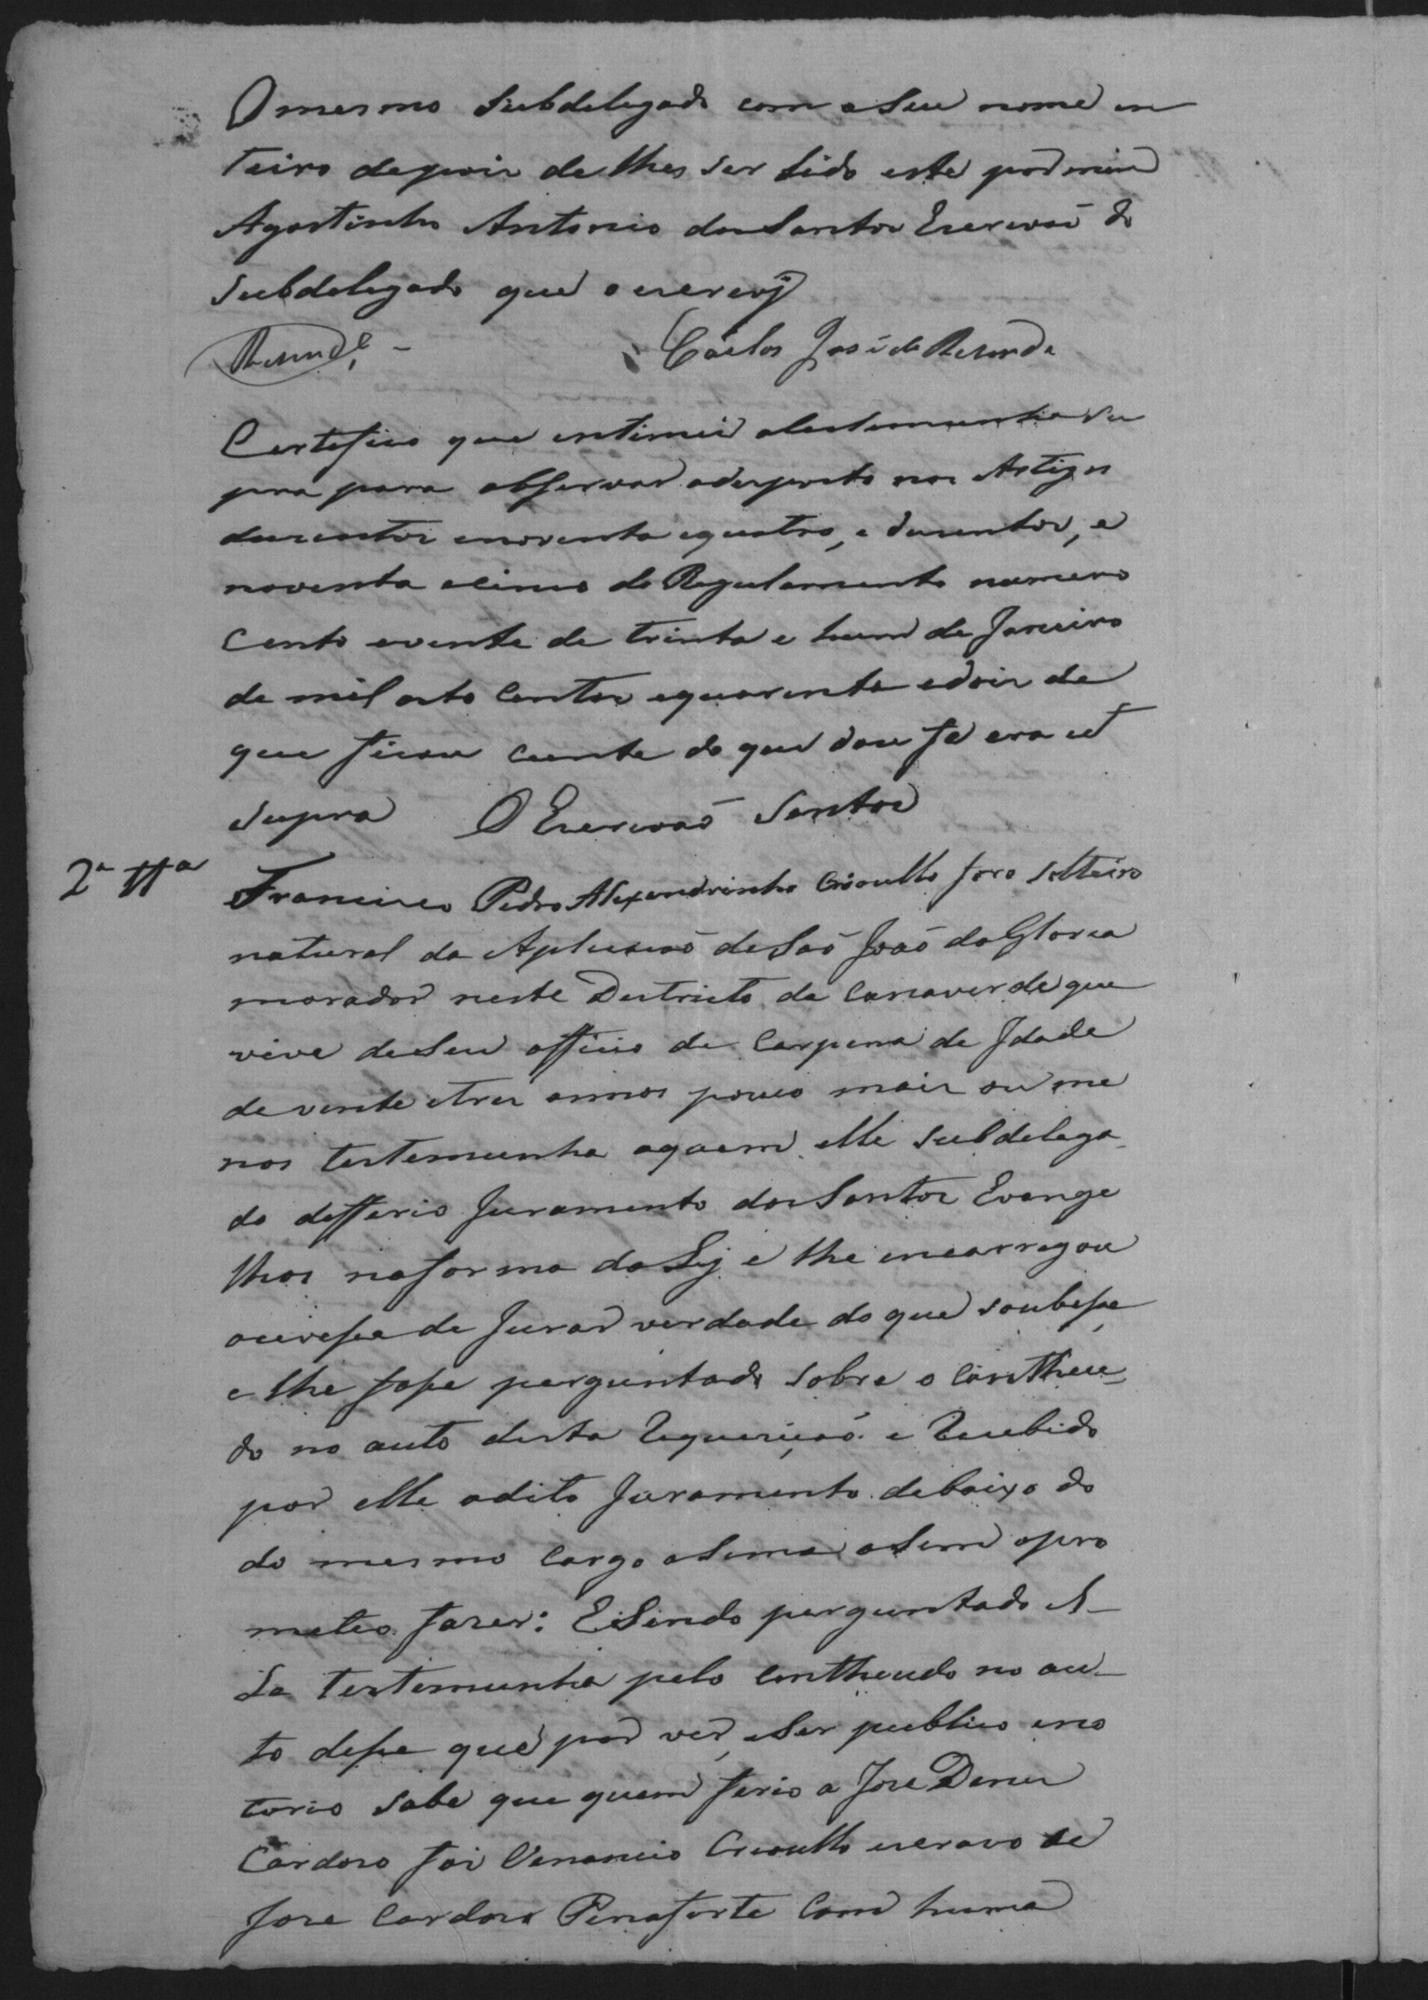 O mesmo Subdelegado com o Seu nome in
teiro depois de lhes ser lido este por mim
Agostinho Antonio dos Santos Escrivaõ do
Subdelegado que o escrevj
Resende Carlos José de Resende
Certefico que intimei a testemunha Su
pra para observar odesposto nos Artigos
duzentos enoventa equatro, e duzentos, e
noventa e cinco do Regulamento numero
Cento evente de trinta e hum de Janeiro
de mil oito Centos equarenta edois de
que ficou ciente do que dou fé era ut
supra O Escrivaõ Santos
2ª ttª Francisco Pedro Alexandrinho Crioullo foro Solteiro
natural da Aplicacaõ de Saõ Joaõ da Gloria
morador neste Destricto de Canaverde que
vive deSeu officio de Carpina de Idade
de vente etres annos pouco mais ou me
nos testemunha aquem elle Subdelega
do defferio Juramento dos Santos Evange
lhos naforma da Lej e lhe encarregou
ouvesse de Jurar verdade do que soubesse
e lhe fosse perguntado sobre o Contheu
do no auto desta Requeriçaõ e Recebido
por elle odito Juramento debaixo do
do mesmo Cargo aSima aSim opro
meteo fazer: ESendo perguntado el
la testemunha pelo Contheudo no au
to disse que por ver, eSer publico eno
torio Sabe que quem ferio a Jose Denis
Cardozo foi Venancio Crioullo escravo de
Joze Cardozo Penaforte Com huma